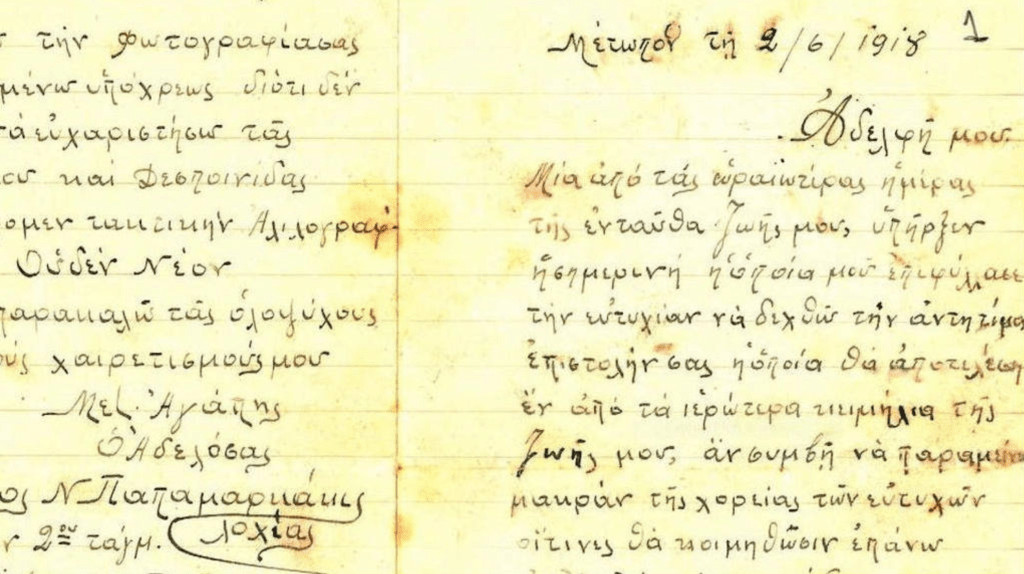 τὴν Φωτογραφίασας
μένω ὑπόχρεως διότι δέν
τά εὐχαριστήσω τάς
ου καί Δεσποινίδας
ομεν τακτικήν Ἀλιλογραφ.
Οὐδέν Νέον
παρακαλῶ τάς ὁλοψύχους
ούς χαιρετισμούς μου
Μεζ. Ἀγάπης
Ὁ Ἀδελόσας
ος Ν Παπαμαρκάκις
ν 2ου τάγμ. Λοχίας
1
Μέτωπον τῇ 2/6/1918
Ἀδελφή μου.
Μία ἀπό τάς ὡραιωτέρας ἡμέρας
τῆς ἐνταῦθα Ζωῆς μου, ὑπῆρξεν
ἡ σημερινή ἡ ὁποία μοῦ ἐπιφύλασσε
τήν εὐτυχίαν νά δεχθῶ τήν ἀντητίμο
ἐπιστολήν σας ἡ ὁποία θά ἀποτελέση
ἕν ἀπό τά ἱερώτερα κειμήλια τῆς
Ζωῆς μου, ἄν συμβῇ νά παραμείνω
μακράν τῆς χορείας τῶν εὐτυχῶν
οἵτινες θά κοιμηθῶσιν ἐπάνω